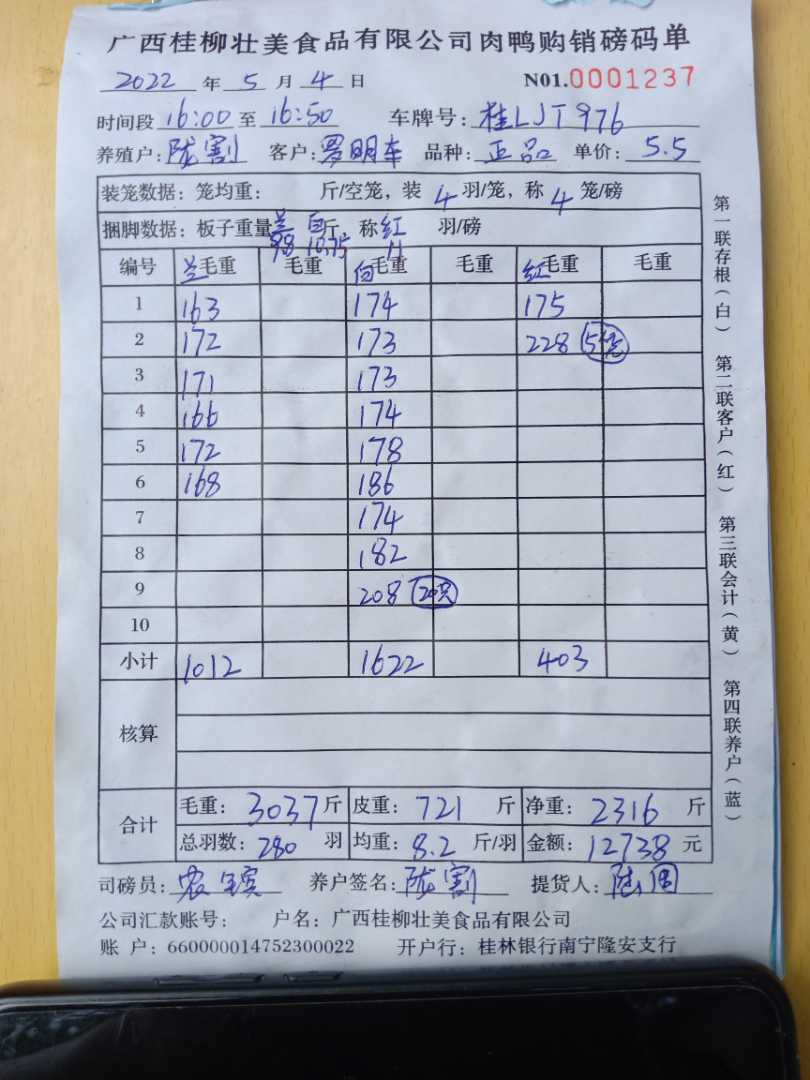 广西桂柳壮美食品有限公司肉鸭购销磅码单
2022 年 5 月 4 日 N01.0001237
时间段 16:00 至 16:50 车牌号: 桂LJT976
养殖户: 陇割 客户: 罗明车 品种: 正品 单价: 5.5
装笼数据: 笼均重: 斤/空笼, 装 4 羽/笼, 称 4 笼/磅
捆脚数据: 板子重量 兰 白 斤, 称 红 羽/磅
9.8 10.75 11
编号 兰毛重 毛重 白毛重 毛重 红毛重 毛重
1 163 174 175
2 172 173 228 5笼
3 171 173
4 166 174
5 172 178
6 168 186
7 174
8 182
9 208 20只
10
小计 1012 1622 403
核算
合计 毛重: 3037 斤 皮重: 721 斤 净重: 2316 斤
总羽数: 280 羽 均重: 8.2 斤/羽 金额: 12738 元
司磅员: 农 养户签名: 陇割 提货人: 陆
公司汇款账号: 户名: 广西桂柳壮美食品有限公司
账户: 660000014752300022 开户行: 桂林银行南宁隆安支行
第一联存根(白) 第二联客户(红) 第三联会计(黄) 第四联养户(蓝)